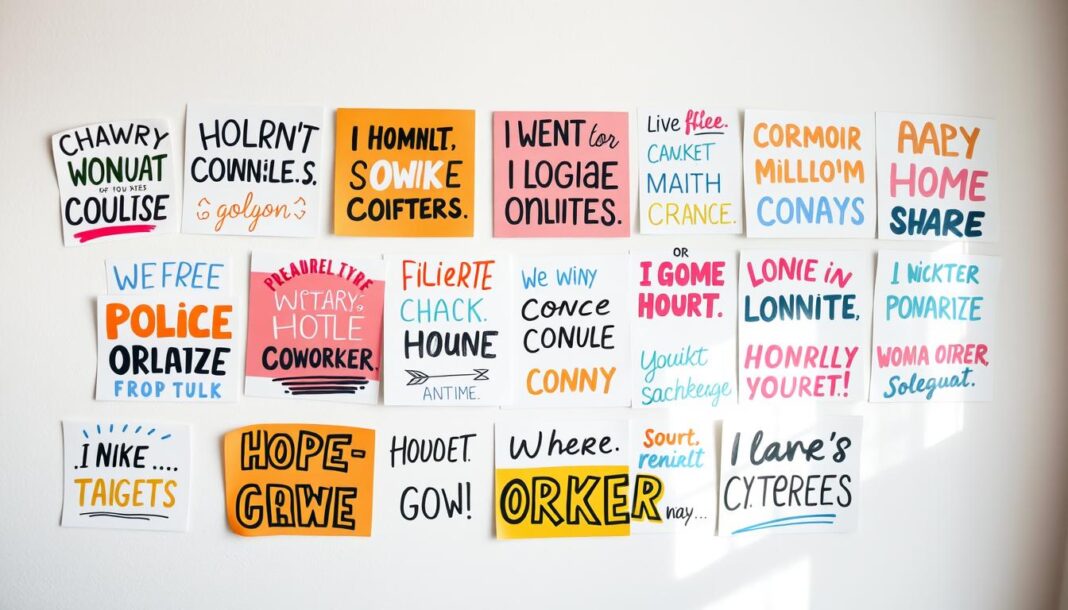 CHAWRY
WONUAT
COULISE
HOLRN'T
COWNILE.S.
golyon
I HOMNLT,
SOWIKE
COIFTERS.
I WENT for
I LOGIAE
ONLIITES.
Live ffiee.
CAN.KET
MAITH
CRANCE.
CORMOIR
MILLLO'M
CONAYS
AAPY
HOME
SHARE
WE FREE
POLICE
ORLAIZE
FROP TULK
PREAUREL TYRE
WETARY:
HOTLE
COWORKER.
FILIERTE
CHACK.
HOUNE
ANTIME.
We WINY
CONCE
CONULE
CONNY
OR
I GOME
HOURT.
Youikt
Sachkesge
LONIE in
LONNITE,
HONRLLY
YOURET.!
I WICKTER
PONARIZE
WOMA OTRER
Soleguat.
.I NIKE ....
TAIGETS
HOPE-
GRWE
HOUDET.
GOW!
Where.
ORKER
Sourt,
renirlt
nay...
I lane's
CYTEREES